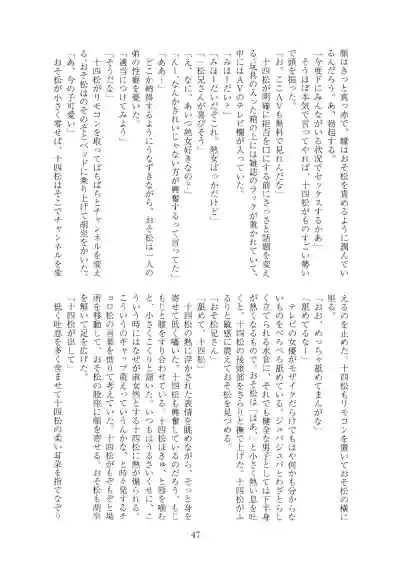 顔はきっと真っ赤で、瞳はおそ松を責めるように潤んでい
るんだろう。あ、勃起する。
「今度下にみんながいる状況でセックスするかあ」
そうほぼ本気で言ってやれば、十四松がものすごい勢い
で頭を振った。
「お。ここAVも無料で見れんだな」
十四松が明確に拒否を口にする前にさっさと話題を変え
る。玩具の入った箱の上には雑誌のラックが置かれていて、
中にはAVのテレビ欄が入っていた。
「みほーだい？」
「みほーだいだぞこれ。熟女ばっかだけど」
「一松兄さんが喜びそう」
「え、なに、あいつ熟女好きなの？」
「んー、なんかきれいじゃない方が興奮するって言ってた」
「ああ…」
どこか納得するようにうなずきながら、おそ松は一人の
弟の性癖を憂いた。
「適当につけてみよう」
「そうだな」
十四松がリモコンを取ってぱちぱちとチャンネルを変え
る。おそ松はのそのそとベッドに乗り上げて胡坐をかいた。
「あ、今の子可愛い」
おそ松が小さく零せば、十四松はそこでチャンネルを変
えるのを止めた。十四松もリモコンを置いておそ松の横に
座る。
「おお、めっちゃ舐めてまんがな」
「舐めてるなー」
テレビの女優がモザイクだらけでもはや何かも分からな
いものをべろべろ舐めている。ジュパジュパとわざとらし
く立てられる水音に、それでも健全な男子としては下半身
が熱くなるもので、おそ松は「はあ」と小さく熱い息を吐
くと、十四松の後頭部をさらりと撫で上げた。十四松がふ
るりと敏感に震えておそ松を見つめる。
「舐めて、十四松」
「おそ松兄さん」
十四松の熱に浮かされた表情を眺めながら、ぞっと身を
寄せて低く囁いた。十四松も興奮しているのだろう、もじ
もじと膝をすり合わせている。十四松はきゅ、と唇を噛む
と、小さくこくりと頷いた。いつもはうるさいくせに、こ
ういう時にはなぜか淑女然とする十四松に熱が煽られる。
こういうのギャップ萌えっていうんかな、と時々発するチ
ョロ松の言葉を借りて考えていた。十四松がもぞもぞと場
所を移動して、おそ松の股座に顔を寄せる。おそ松も胡坐
を解いて足を広げた。
「十四松が出して」
低く吐息を多く含ませて十四松の柔い耳菜を指でなぞり
47